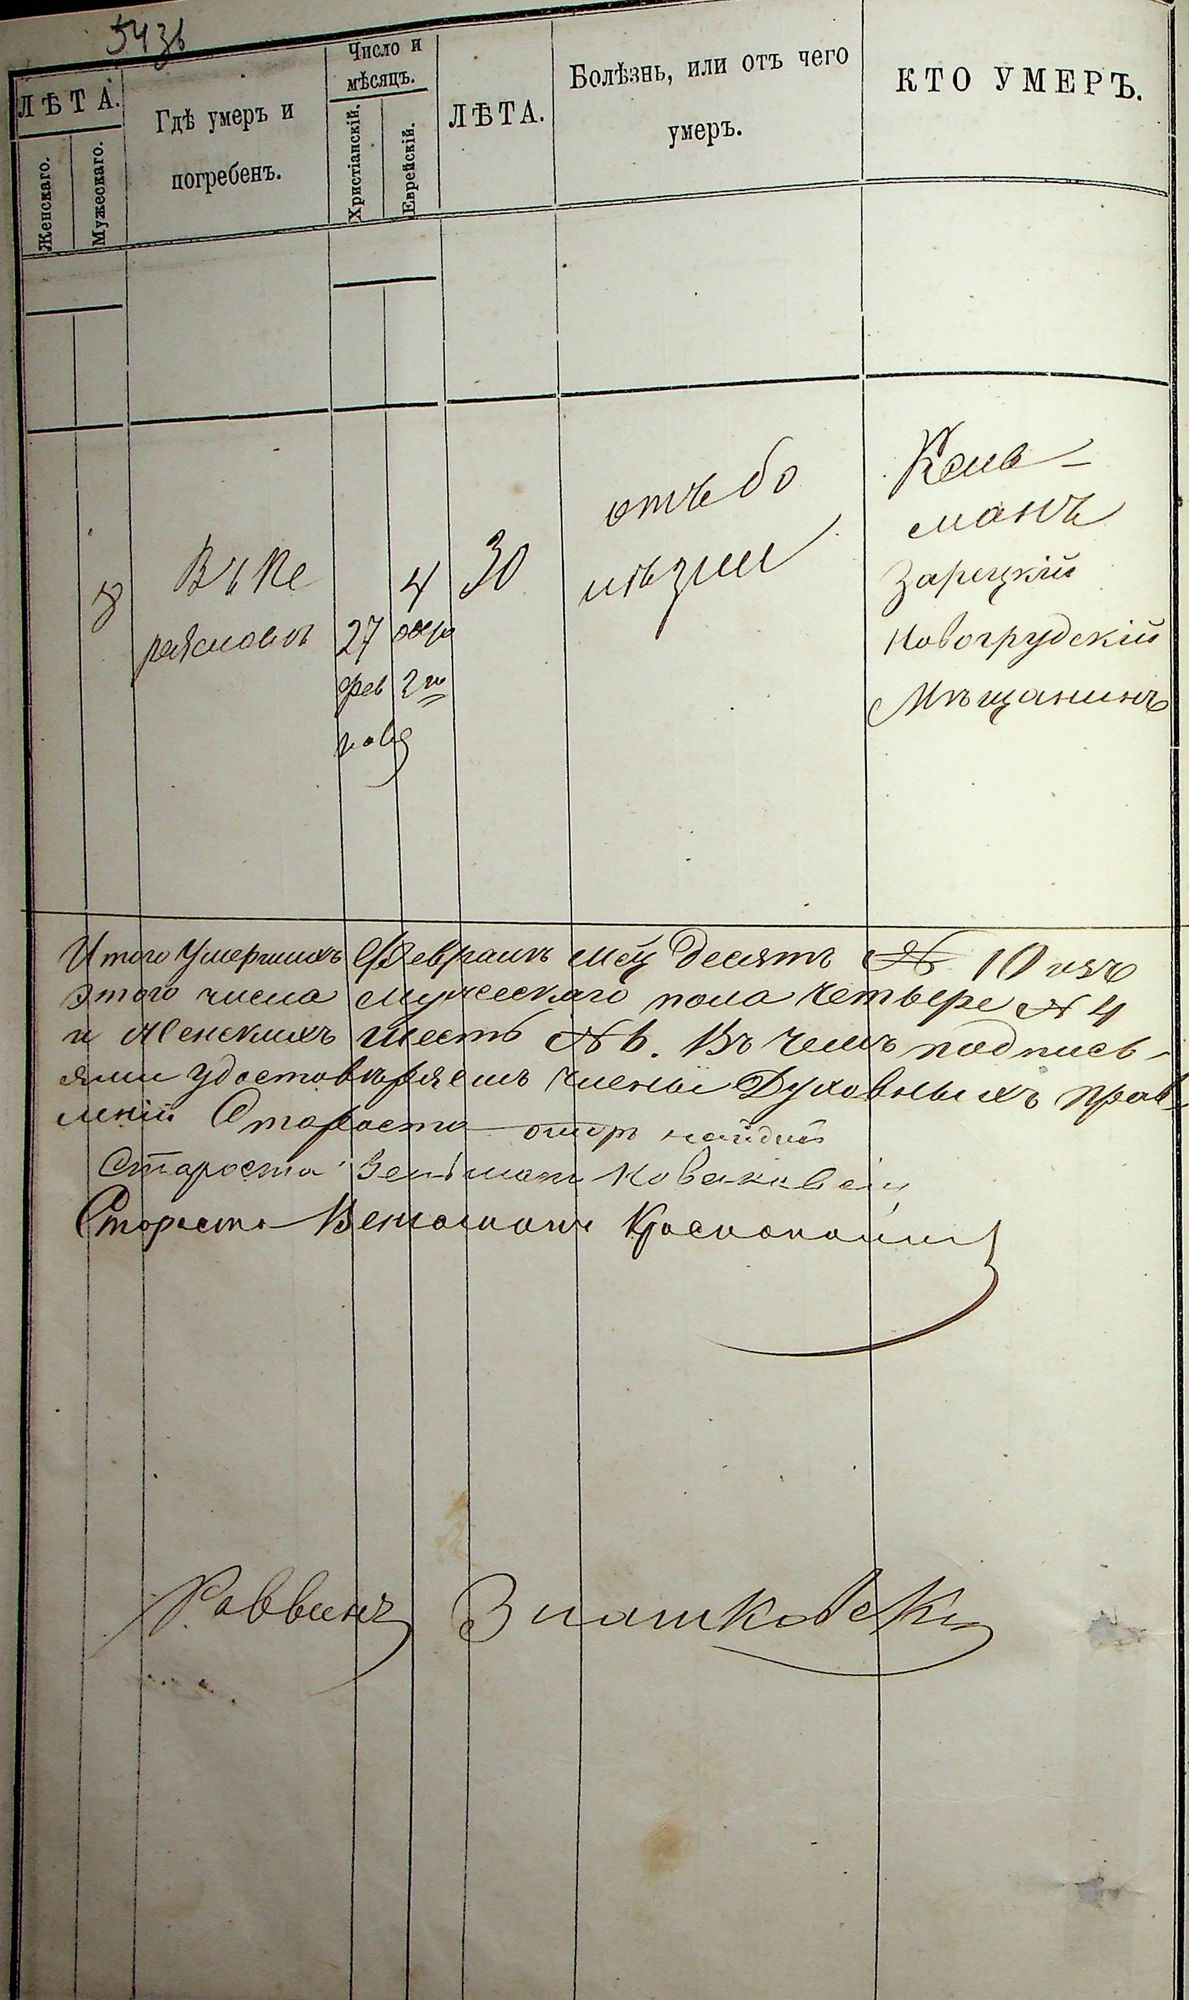 543б
ЛѢТА.
Женскаго.
Мужескаго.
Гдѣ умеръ и
погребенъ.
Число и
мѣсяцъ.
Христіанскій.
Еврейскій.
ЛѢТА.
Болѣзнь, или отъ чего
умеръ.
КТО УМЕРЪ.
8
Въ Пе
реясловлѣ
27
фев
4
30
отъ бо
лѣзни
Каль-
манъ
Зарецкій
Новогрудскій
Мѣщанинъ
Итого умершихъ Февралѣ мсц десять № 10 изъ
этого числа Мужескаго пола четыре № 4
и Женскихъ шесть № 6. Въ чемъ подпись-
ями удостовѣряемъ члены Духовныхъ прав-
леній Староста
Староста Зельман
Староста Веньаминъ
Раввинъ Злашковски